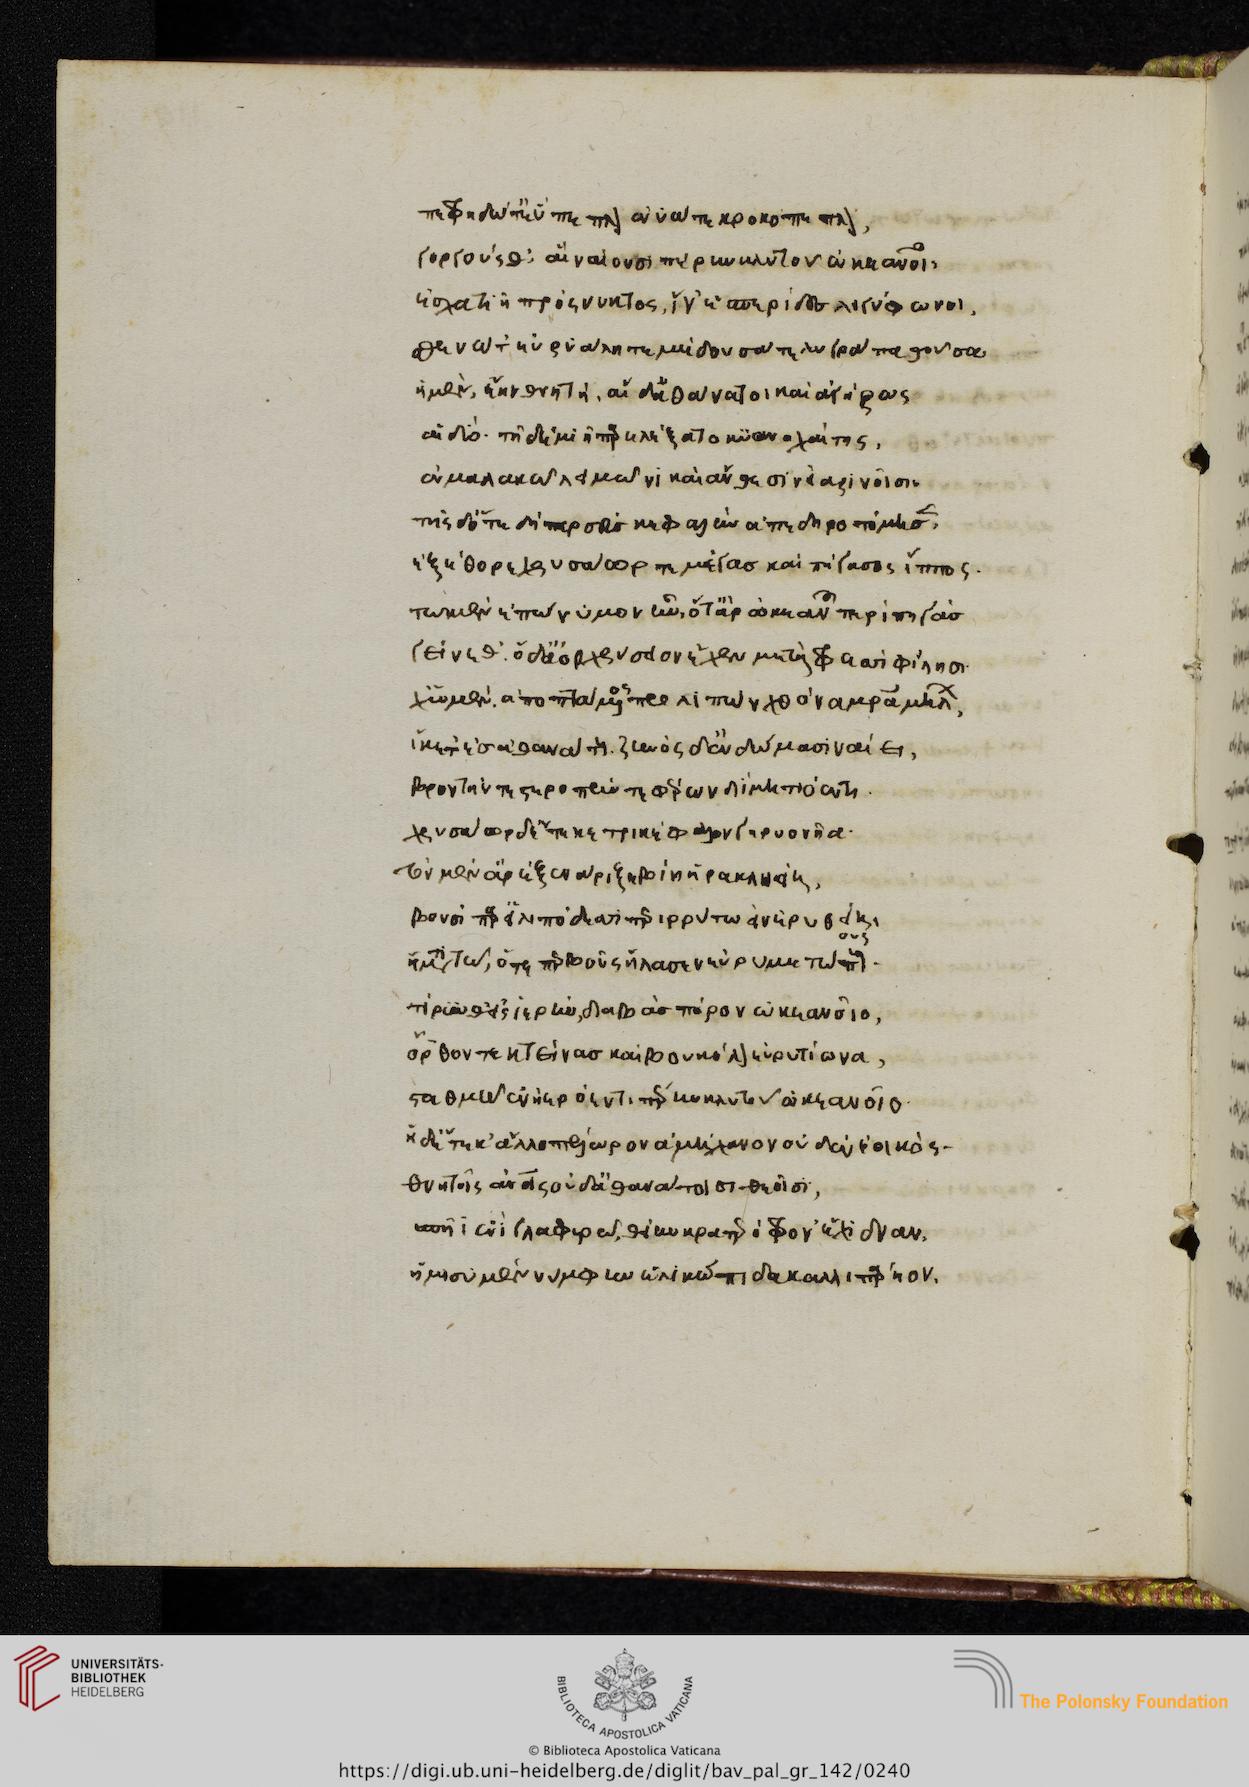 πεφρηδώ τ' εὔπεπλον ἐνυώ τε κροκόπεπλον,
γοργούς θ' αἳ ναίουσι πέρην κλυτοῦ ὠκεανοῖο
ἐσχατιῇ πρὸς νυκτός, ἵν' ἑσπερίδες λιγύφωνοι,
σθενώ τ' εὐρυάλη τε μέδουσά τε λυγρὰ παθοῦσα
ἡ μὲν, ἔην θνητή. αἱ δ' ἀθάνατοι καὶ ἀγήρως
αἱ δύο. τῇ δὲ μιῇ παρελέξατο κυανοχαίτης,
ἐν μαλακῷ λειμῶνι καὶ ἄνθεσιν εἰαρινοῖσι.
τῆς δ' ὅτε δὴ περσεὺς κεφαλὴν ἀπεδειροτόμησεν,
ἐξέθορε χρυσάωρ τε μέγας καὶ πήγασος ἵππος.
τῷ μὲν ἐπώνυμον ἦν, ὅτ' ἄρ' ὠκεανοῦ περὶ πηγὰς
γείνεθ'. ὁ δ' ἄορ χρύσειον ἔχεν μετὰ χερσὶ φίλησι.
χὠ μὲν. ἀποπτάμενος προλιπὼν χθόνα μητέρα μήλων,
ἵκετ' ἐς ἀθανάτους. ζηνὸς δ' ἐν δώμασι ναίει,
βροντήν τε στεροπήν τε φέρων διὶ μητιόεντι.
χρυσάωρ δ' ἔτεκε τρικέφαλον γηρυονῆα.
τὸν μὲν ἄρ' ἐξενάριξε βίη ἡρακληείη,
βουσὶ παρ' εἰλιπόδεσσι περιρρύτῳ εἰν ἐρυθείῃ
ἤματι τῷ, ὅτε περ βοῦς ἤλασεν εὐρυμετώπους
τίρυνθ' εἰς ἱερήν, διαβὰς πόρον ὠκεανοῖο,
ὄρθον τε κτείνας καὶ βουκόλον εὐρυτίωνα,
σταθμῷ ἐν ἠερόεντι πέρην κλυτοῦ ὠκεανοῖο.
ἡ δ' ἔτεκ' ἄλλο πέλωρον ἀμήχανον οὐδὲν ἐοικός.
θνητοῖς ἀνθρώποις οὐδ' ἀθανάτοισι θεοῖσι,
σπῆϊ ἐνὶ γλαφυρῷ, θείην κρατερόφρον' ἔχιδναν.
ἥμισυ μὲν νύμφην ἑλικώπιδα καλλιπάρηον.
UNIVERSITÄTS-
BIBLIOTHEK
HEIDELBERG
BIBLIOTECA APOSTOLICA VATICANA
The Polonsky Foundation
© Biblioteca Apostolica Vaticana
https://digi.ub.uni-heidelberg.de/diglit/bav_pal_gr_142/0240